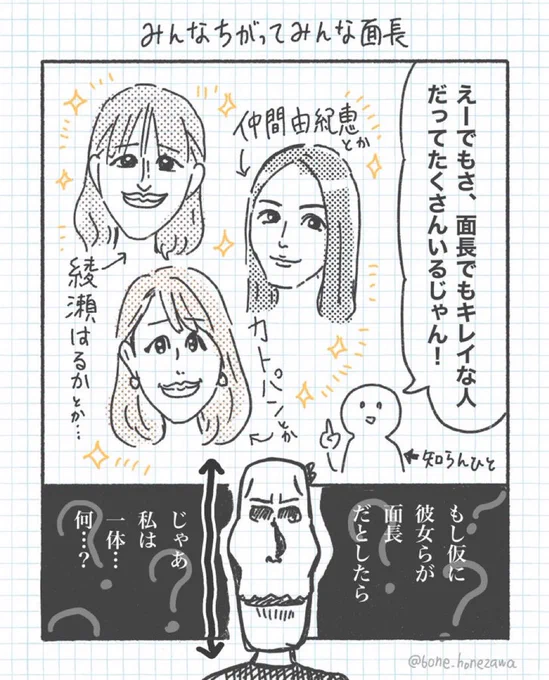 みんなちがってみんな面長
えーでもさ、面長でもキレイな人
だってたくさんいるじゃん!
仲間由紀恵
とか
綾瀬はるかとか…
カトパンとか
知らんひと
もし仮に
彼女らが
面長
だとしたら
じゃあ
私は
一体…
何…?
@bone_honezawa